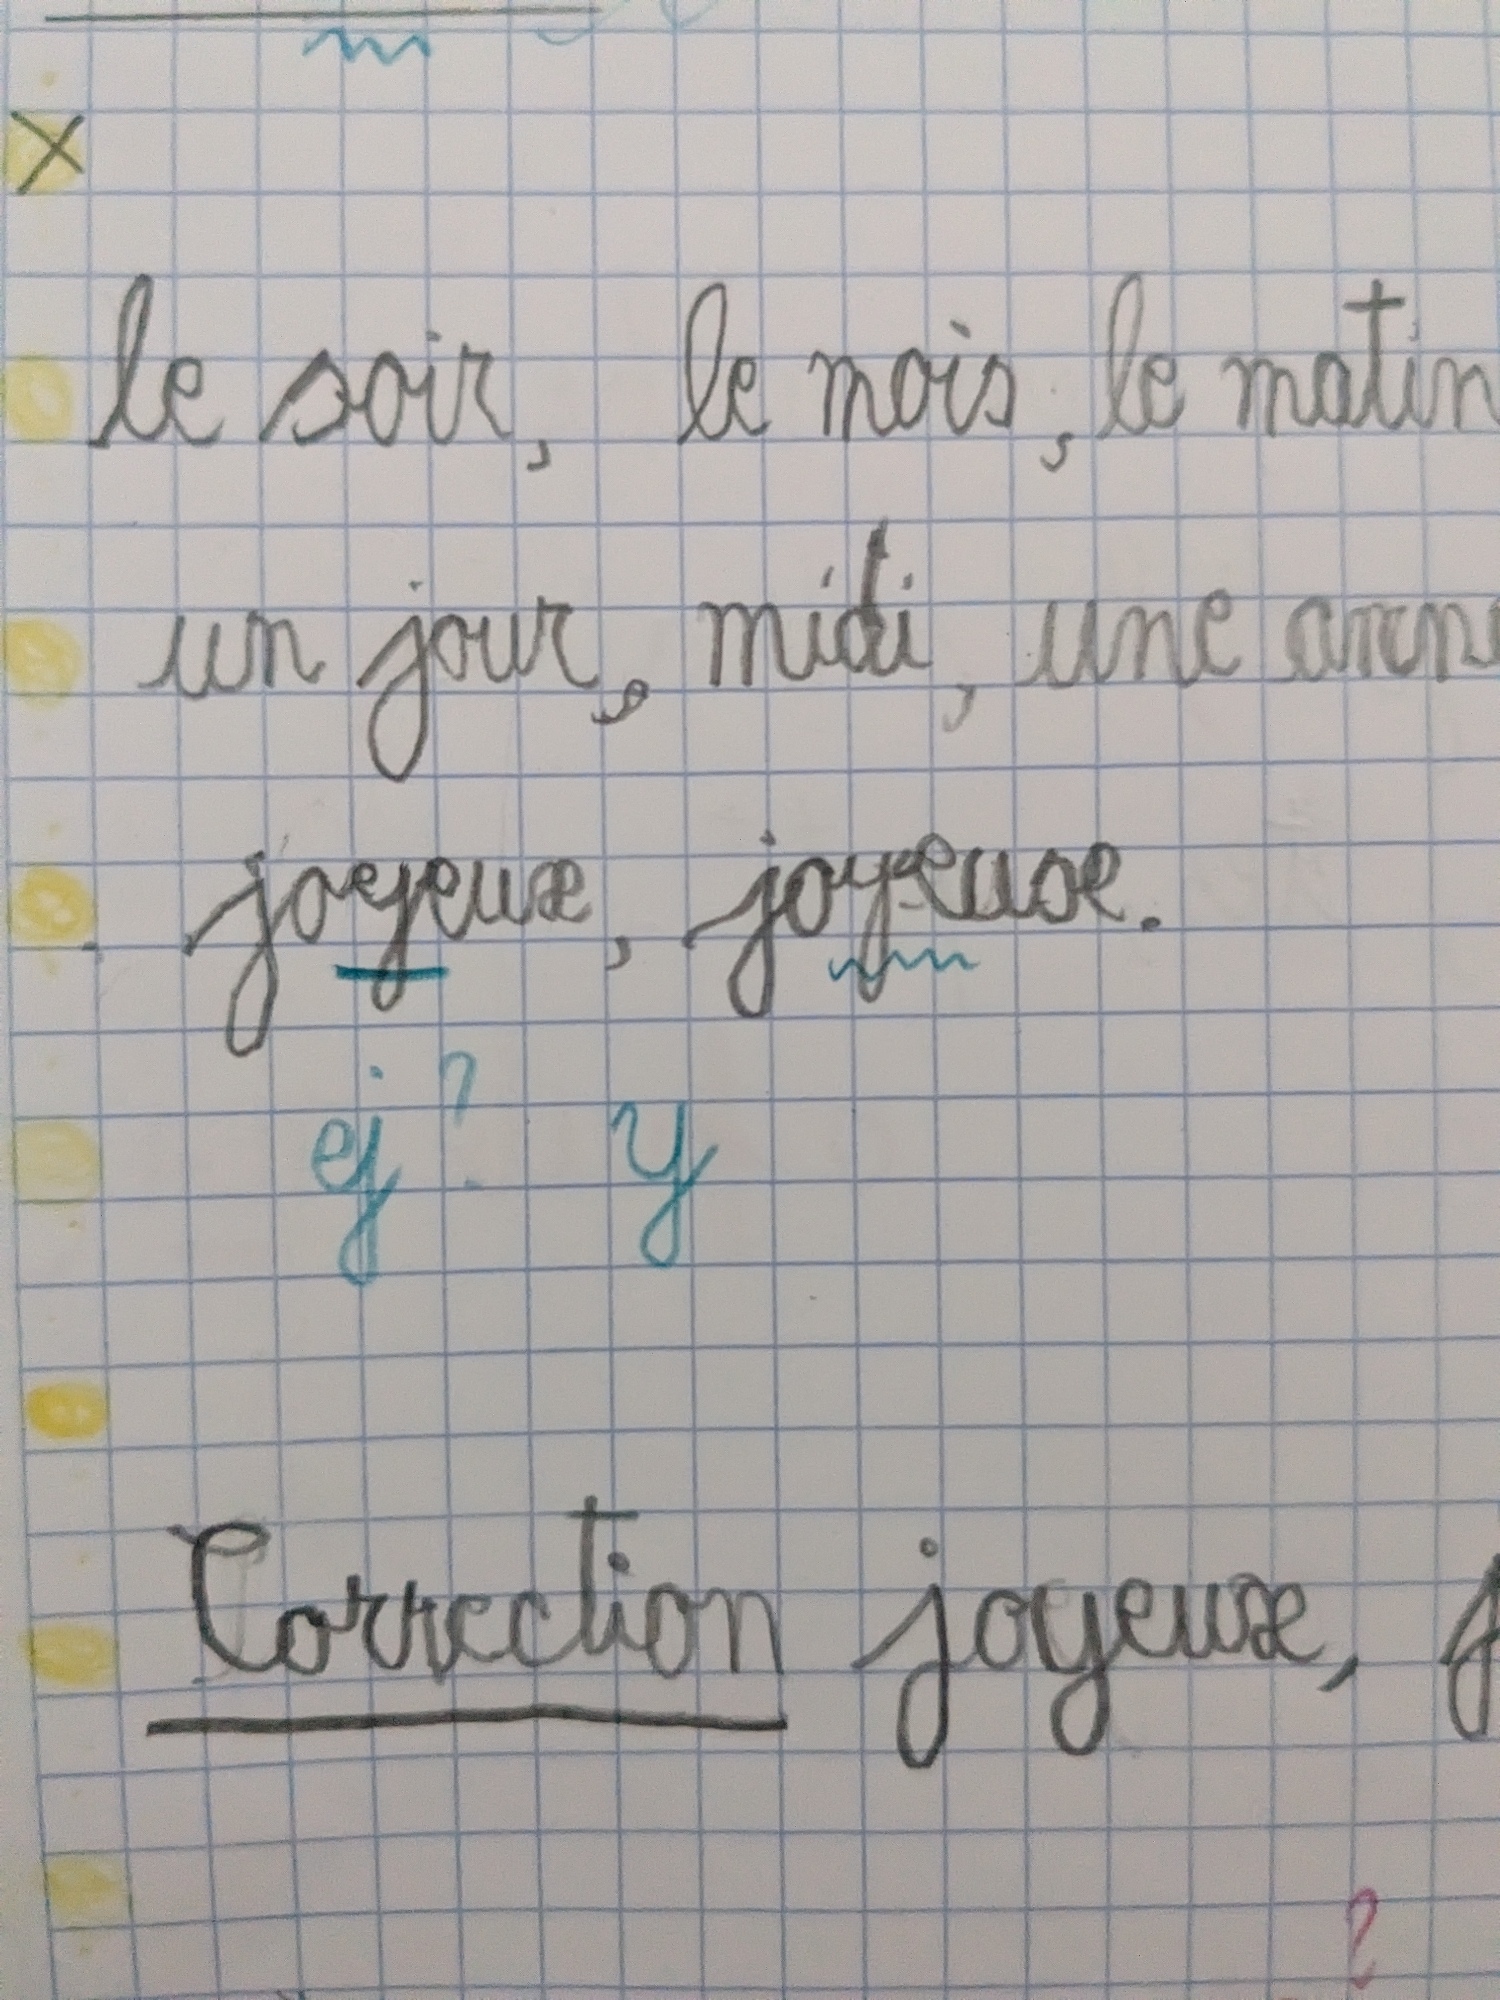 X
le soir, le mois, le matin
un jour, midi, une
joyeux, joyeuse.
ej? y
Correction joyeux,
?